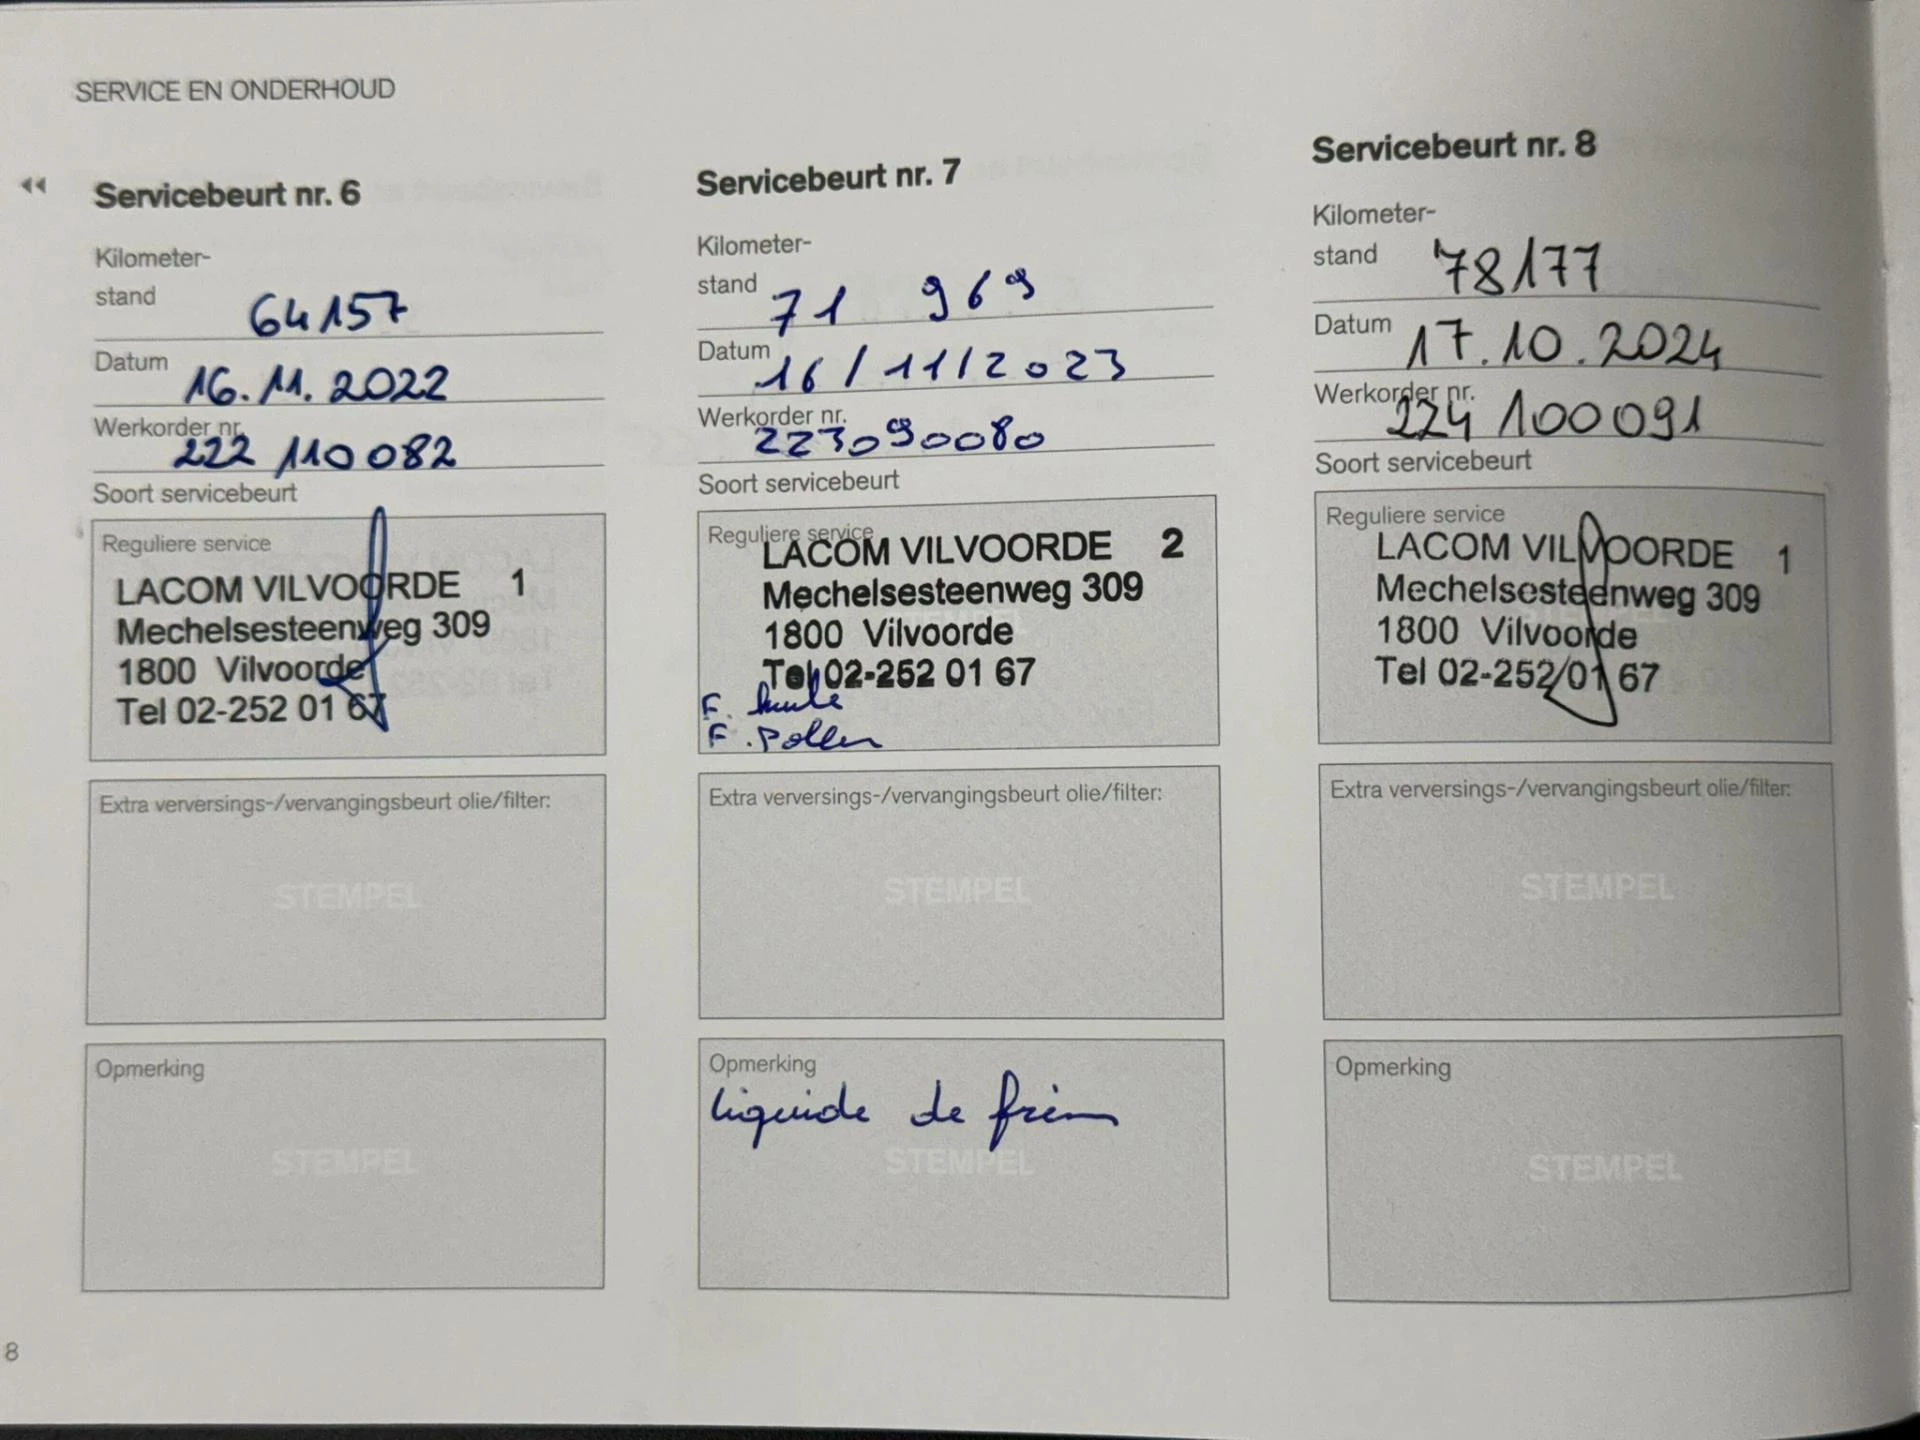 SERVICE EN ONDERHOUD
Servicebeurt nr. 6
Kilometer-
stand 64157
Datum 16.11.2022
Werkorder nr. 222 110082
Soort servicebeurt
Reguliere service
LACOM VILVOORDE 1
Mechelsesteenweg 309
1800 Vilvoorde
Tel 02-252 01 67
Extra verversings-/vervangingsbeurt olie/filter:
STEMPEL
Opmerking
STEMPEL
Servicebeurt nr. 7
Kilometer-
stand 71 969
Datum 16/11/2023
Werkorder nr. 223090080
Soort servicebeurt
Reguliere service
LACOM VILVOORDE 2
Mechelsesteenweg 309
1800 Vilvoorde
Tel 02-252 01 67
F.
F. Pollen
Extra verversings-/vervangingsbeurt olie/filter:
STEMPEL
Opmerking
liquide de frein
STEMPEL
Servicebeurt nr. 8
Kilometer-
stand 78177
Datum 17.10.2024
Werkorder nr. 224 100091
Soort servicebeurt
Reguliere service
LACOM VILVOORDE 1
Mechelsesteenweg 309
1800 Vilvoorde
Tel 02-252 01 67
Extra verversings-/vervangingsbeurt olie/filter:
STEMPEL
Opmerking
STEMPEL
8